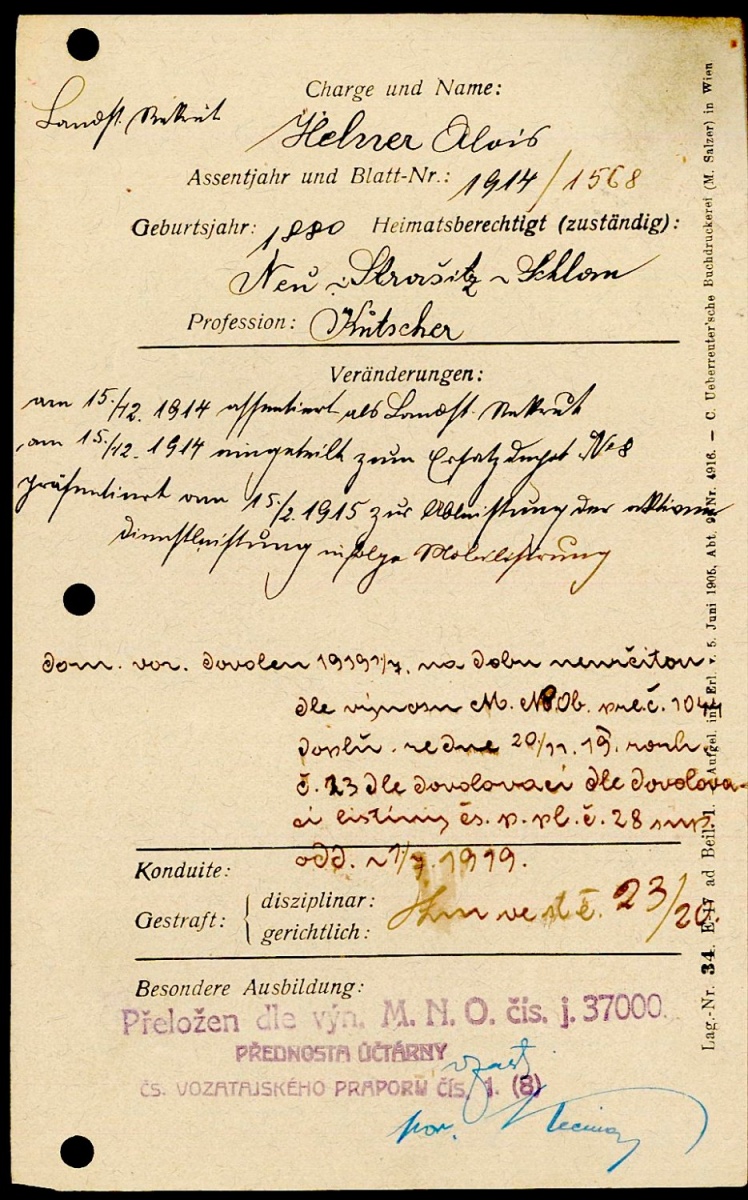 Charge und Name:
Landst. Rekrut
Helner Alois
Assentjahr und Blatt-Nr.: 1914/1568
Geburtsjahr: 1880 Heimatsberechtigt (zuständig):
Neu - Strašitz - Schlan
Profession: Kutscher
Veränderungen:
am 15./12. 1914 assentiert als Landst. Rekrut
am 15./12. 1914 eingeteilt zum Ersatzdepot No 8
präsentiert am 15./2. 1915 zur Ableistung der aktiven
Dienstleistung infolge Mobilisierung
dom. vor. dovolen 1919 1/7. na dobu neurčitou
dle výnosu M. N. Ob. pres. č. 1044
doplň. ze dne 20/11. 19. rozk.
č. 23 dle dovolovací dle dovolova-
cí listiny čs. p. pl. č. 28
odd. 1/7. 1919.
Konduite:
Gestraft: { disziplinar:
gerichtlich:
č. 23/20.
Besondere Ausbildung:
Přeložen dle výn. M. N. O. čís. j. 37000.
PŘEDNOSTA ÚČTÁRNY
ČS. VOZATAJSKÉHO PRAPORU ČÍS. 1. (8)
por.
Lag.-Nr. 34. E-IV ad Beil. 1. Aufgel. inf. Erl. v. 5. Juni 1905, Abt. 9, Nr. 4916. — C. Ueberreuter'sche Buchdruckerei (M. Salzer) in Wien